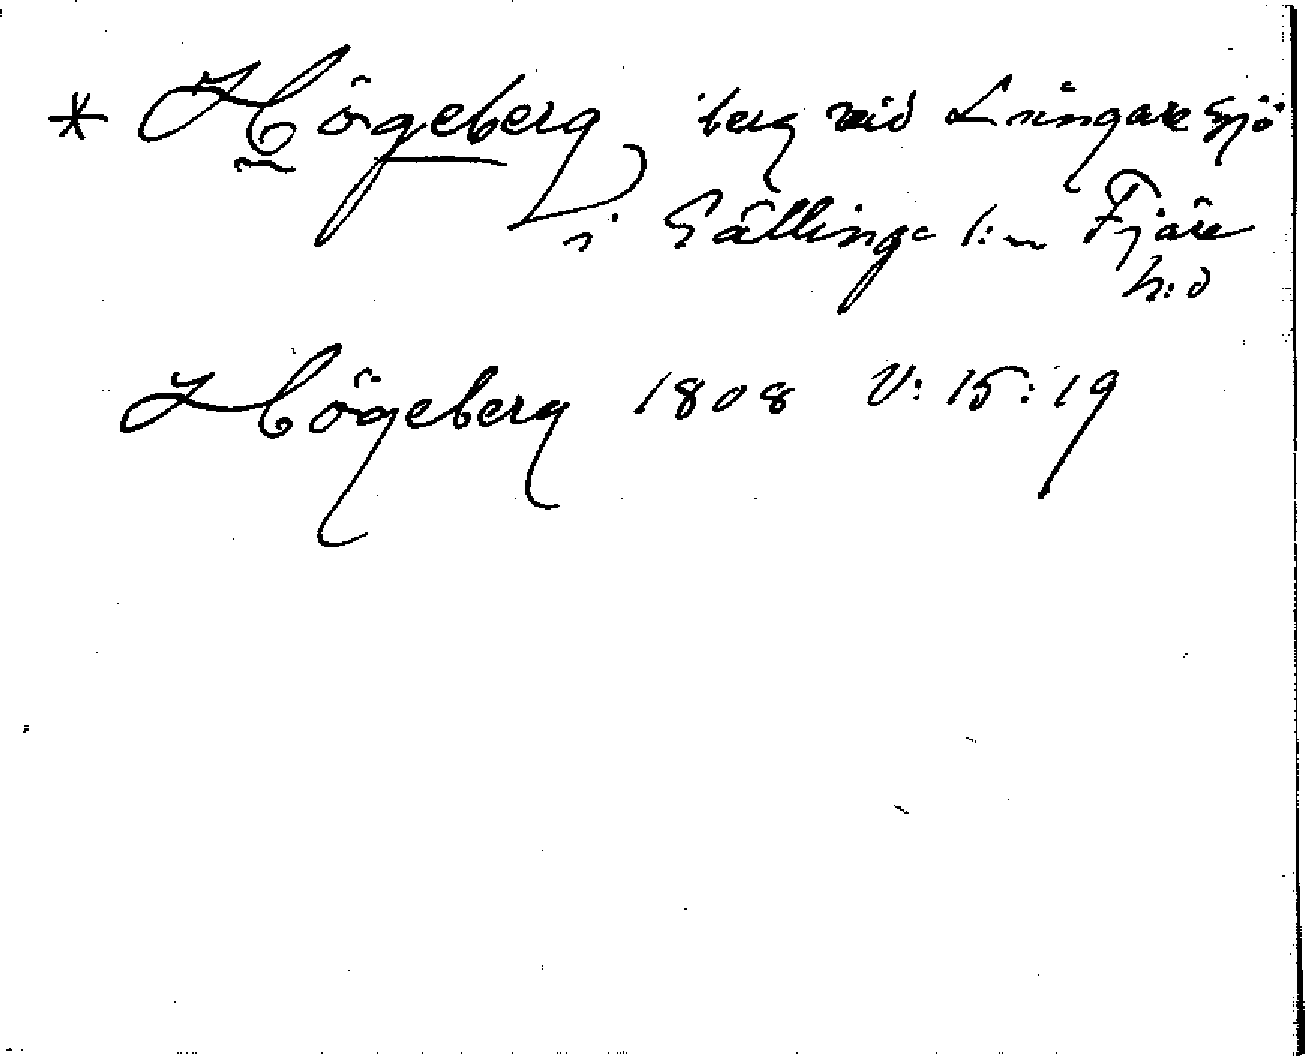 * Högeberg, berg vid Lningare Sjö
i Gällinge s:n Fjäre
h:d
Högeberg 1808 V: 15: 19